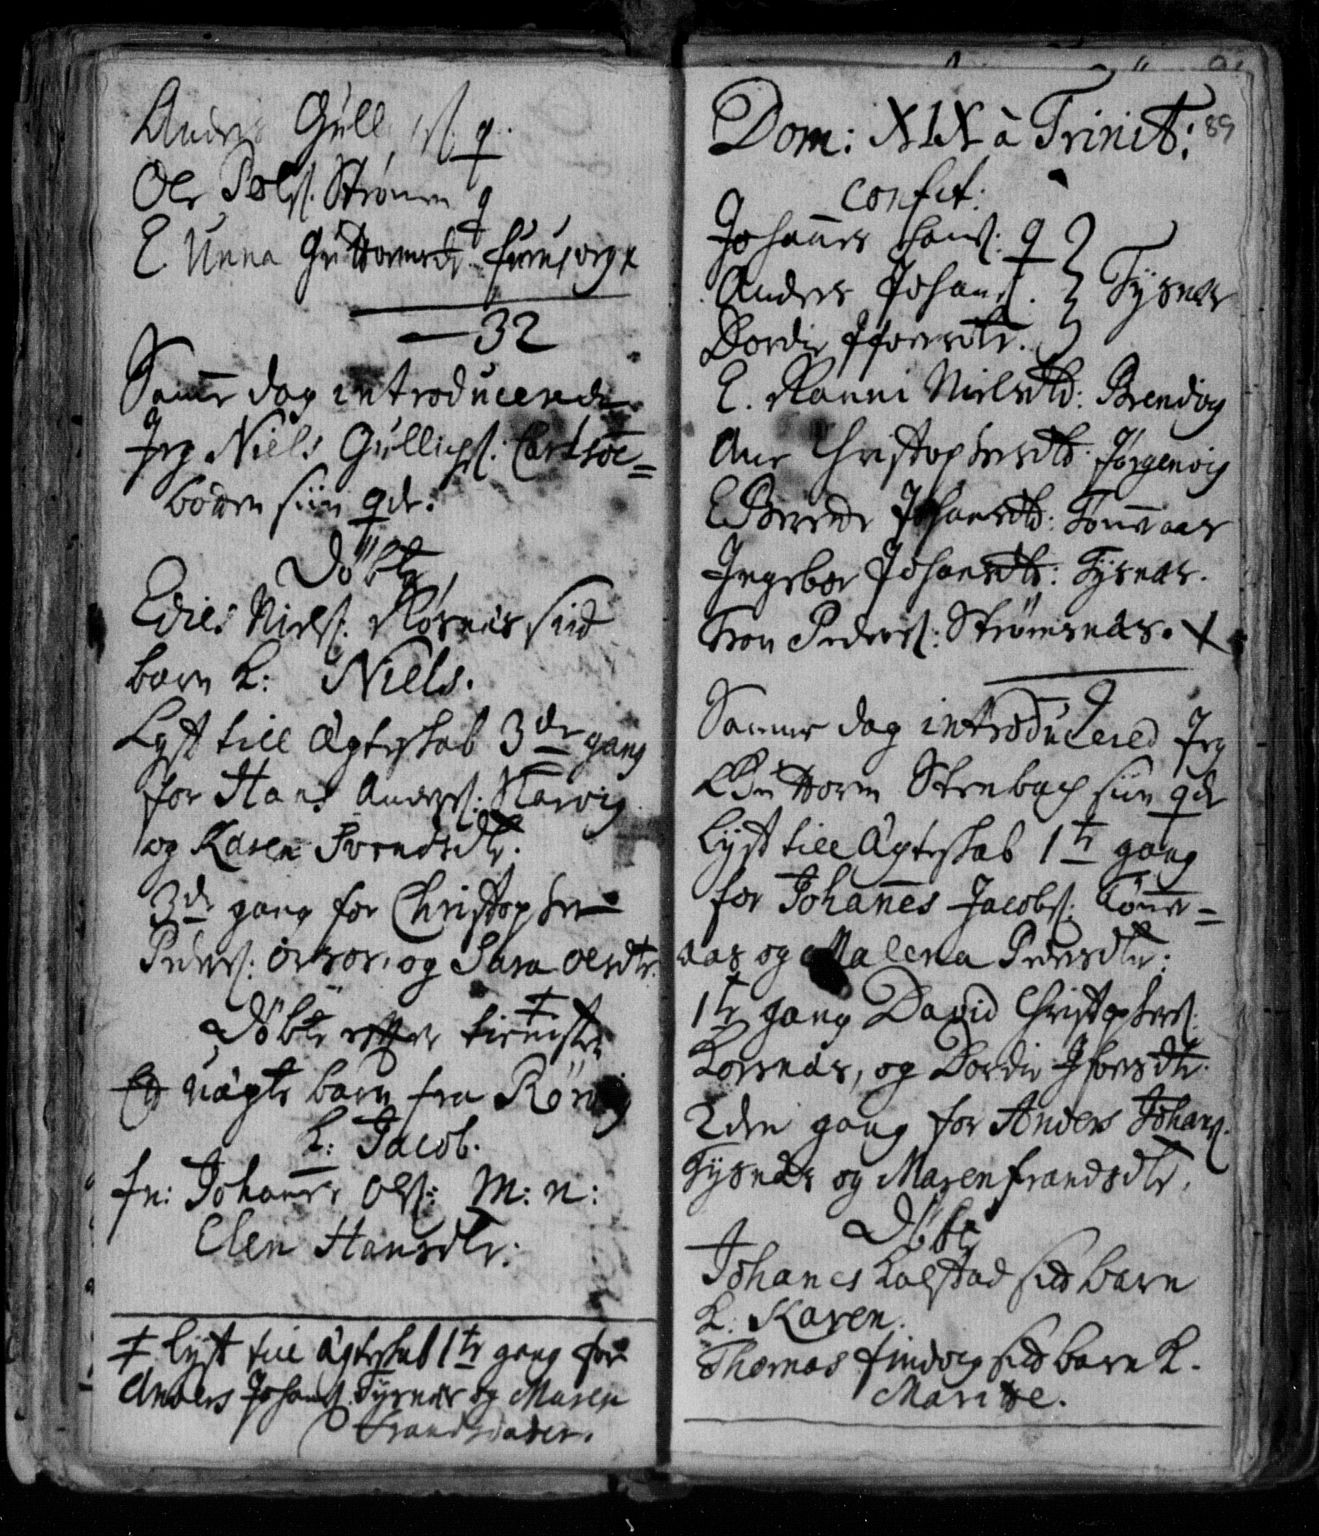 Anders Gull s. q.
Ole Pols. Strömen q
E Anna Guttormsdtr furuvog x
32
Samme dag introducerede
Jeg Niels Gullichs. Carlsöe=
botten siin qde:
Döbte
Edies Niels. Rösnes siit
barn k: Niels.
Lyst till ægteskab 3de gang
for Hans Anders: Narvig
og Karen Svendsdtr.
3de gang for Christopher
Peders: og Sara Olsdtr.
Döbt efter tienisten
Et uægte barn fra Rörvig
k: Jacob.
fr: Johanes Ols: M: n:
Elen Hansdtr:
‡ Lyst till ægteskab 1te gang for
Anders Johans. Tysnes og Maren
Frandsdater.
Dom: XIX à Trinit: 89
Confit:
Johannes Hans: q
Anders Johans. Tysnes
Dordie Ifversdtr.
E. Ranni Nielsdtr: Brendvog
Ane Christophersdtr Jörgenvig
E Berete Johansdtr: Tömmeraas
Ingebor Johansdtr: Tysnes.
Tron Peders: Strömsnes. x
Samme dag introducered Jeg
Guttorm Stenbach siin qde
Lyst till ægteskab 1te gang
for Johannes Jacobs: Tömer=
aas og Malena Pedersdtr:
1te gang David Christophers:
Korsnes, og Dordie Ifversdtr.
2den gang for Anders Johans.
Tysnes og Maren Frandsdtr.
Döbt
Johanes Kalstad siit barn
k. Karen.
Thomas Findvig siit barn k.
Maritte.